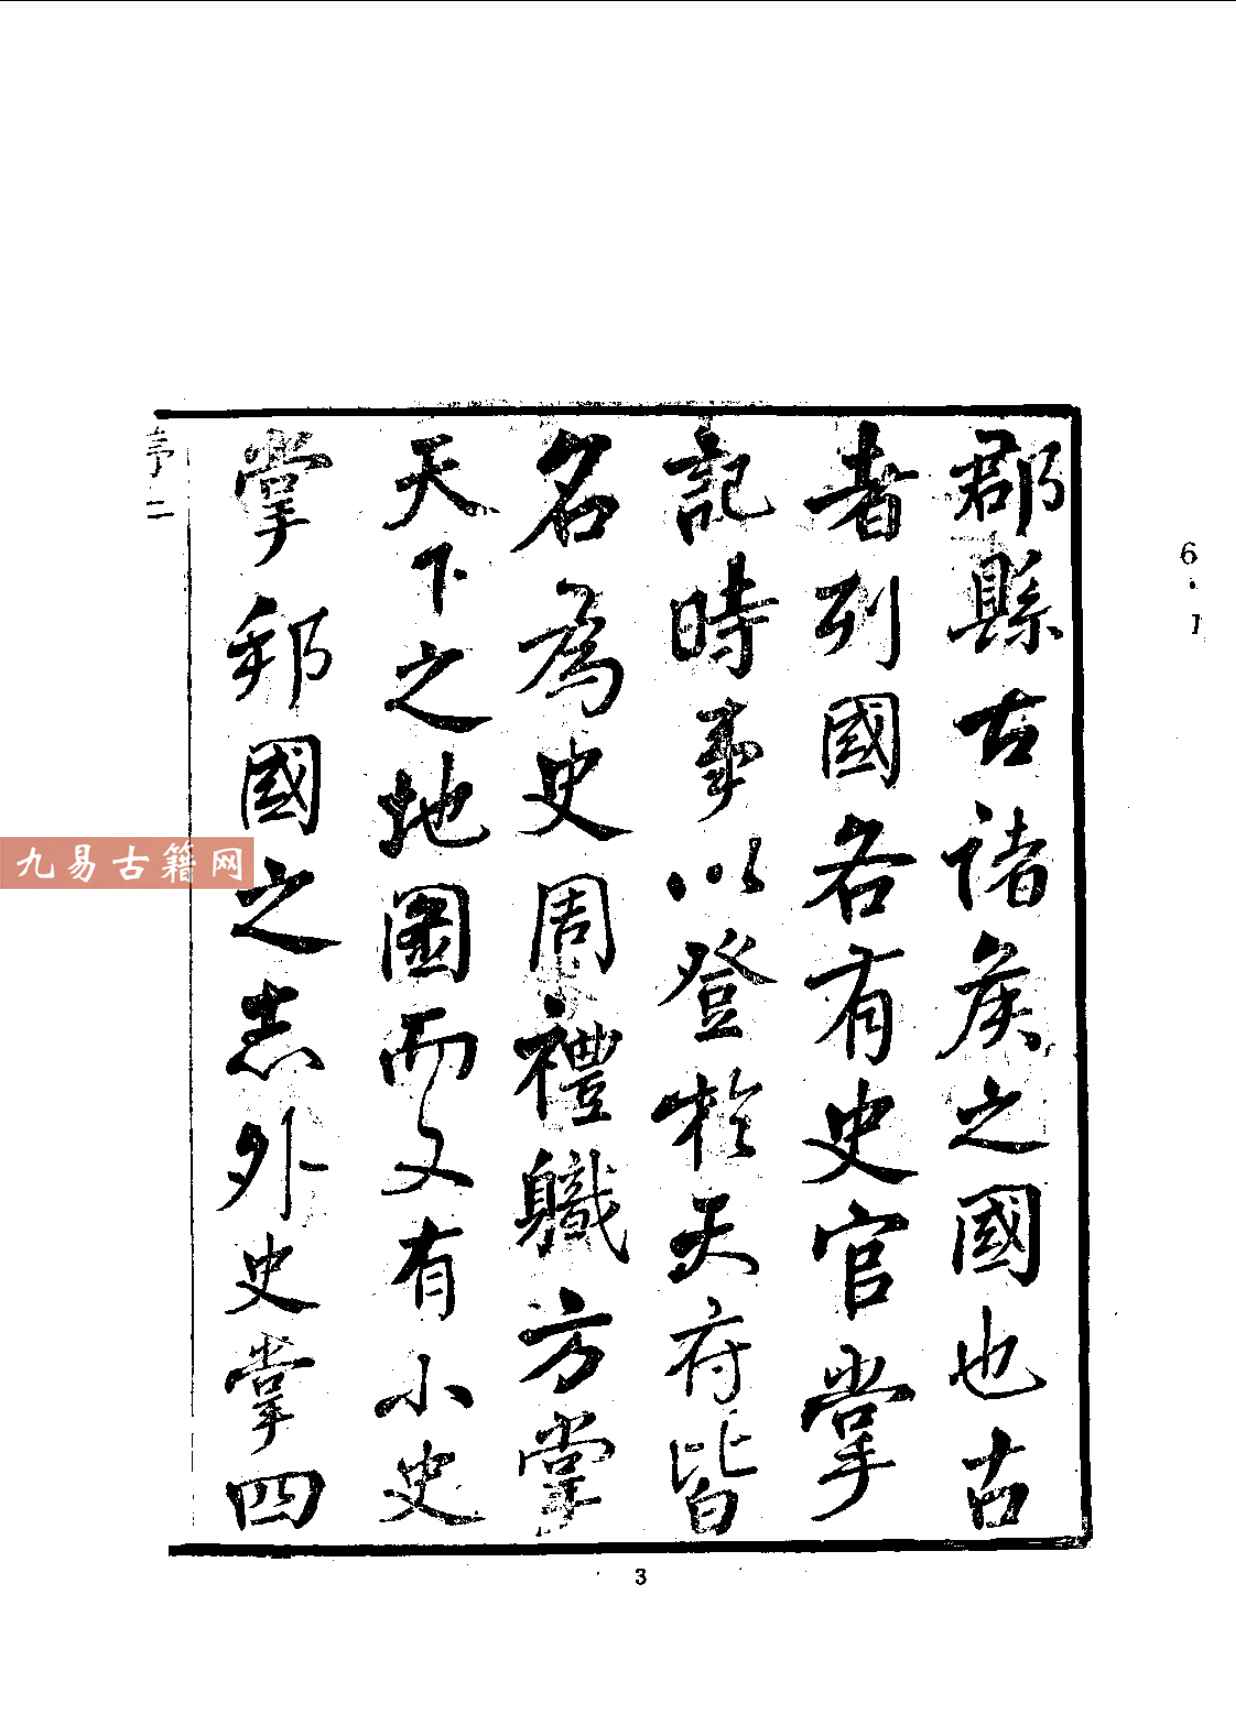 郡縣古諸侯之國也古
者列國各有史官掌
記時事以登於天府皆
名為史周禮職方掌
天下之地圖而又有小史
掌邦國之志外史掌四
序二
6.1
九易古籍网
3